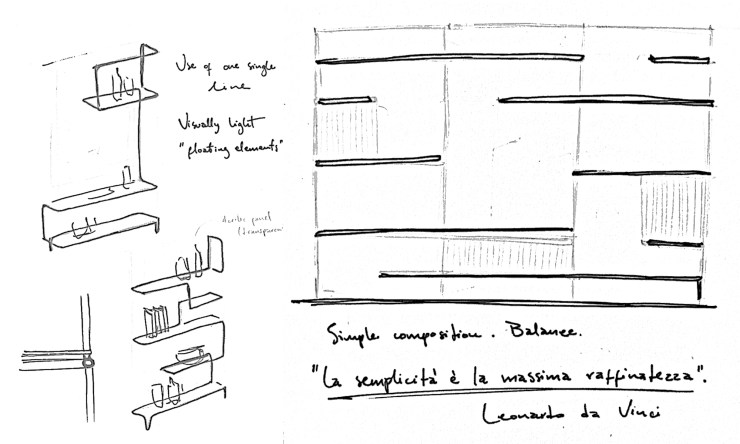 Use of one single
line
Visually light
"floating elements"
panel
Simple composition. Balance.
"La semplicità è la massima raffinatezza".
Leonardo da Vinci